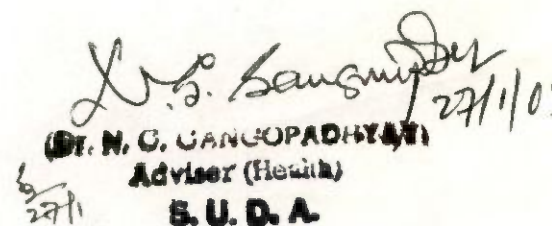 27/1/0
(Dr. N. G. GANGOPADHYAY)
Adviser (Health)
27/1
S. U. D. A.